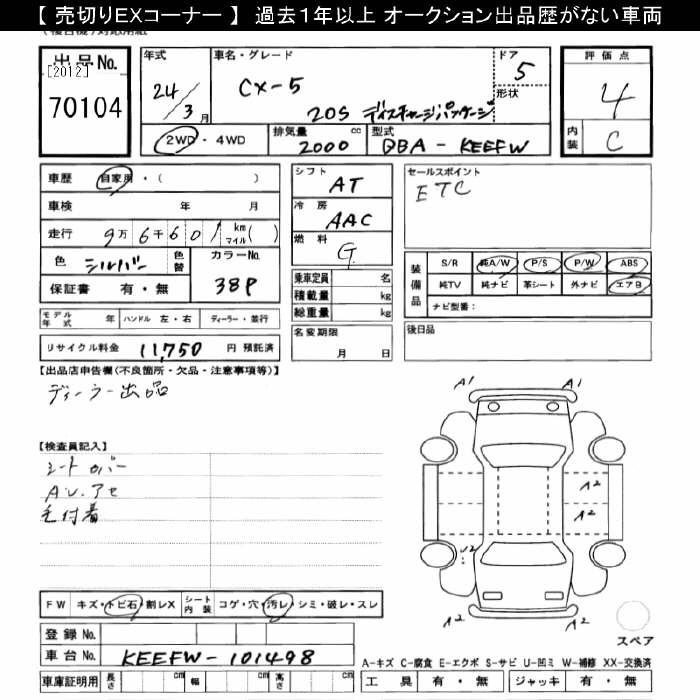 【 売切りEXコーナー 】 過去1年以上 オークション出品歴がない車両
出品No.
[2012]
70104
年式
24/3月
車名・グレード
CX-5
20S ディスチャージパッケージ
ドア
5
形状
評価点
4
内装
C
2WD・4WD
排気量
2000 cc
型式
DBA-KEEFW
車歴 自家用・( )
車検 年 月
走行 9万6千601 km マイル( )
色 シルバー
色替
カラーNo.
38P
保証書 有・無
シフト
AT
冷房
AAC
燃料
G
乗車定員 名
積載量 kg
総重量 kg
名変期限
月 日
セールスポイント
ETC
装備品
S/R 純A/W P/S P/W ABS
純TV 純ナビ 革シート 外ナビ エアB
ナビ型番:
後日品
モデル年式 年 ハンドル 左・右 ディーラー・並行
リサイクル料金 11,750 円 預託済
【出品店申告欄(不良箇所・欠品・注意事項等)】
ディーラー出品
【検査員記入】
シートカバー
毛付着
A1 A1
A2
A2
U2
A2 A2
スペア
FW キズ・トビ石・割レX シート内装 コゲ・穴・汚レ・シミ・破レ・スレ
登録No.
車台No. KEEFW-101498
車庫証明用 長さ cm 幅 cm 高さ cm
A-キズ C-腐食 E-エクボ S-サビ U-凹ミ W-補修 XX-交換済
工具 有・無 ジャッキ 有・無